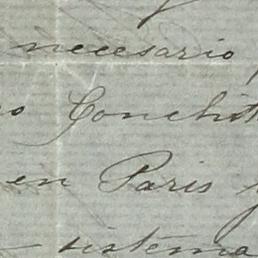 necesario
o Conchit
en Paris y
sistema